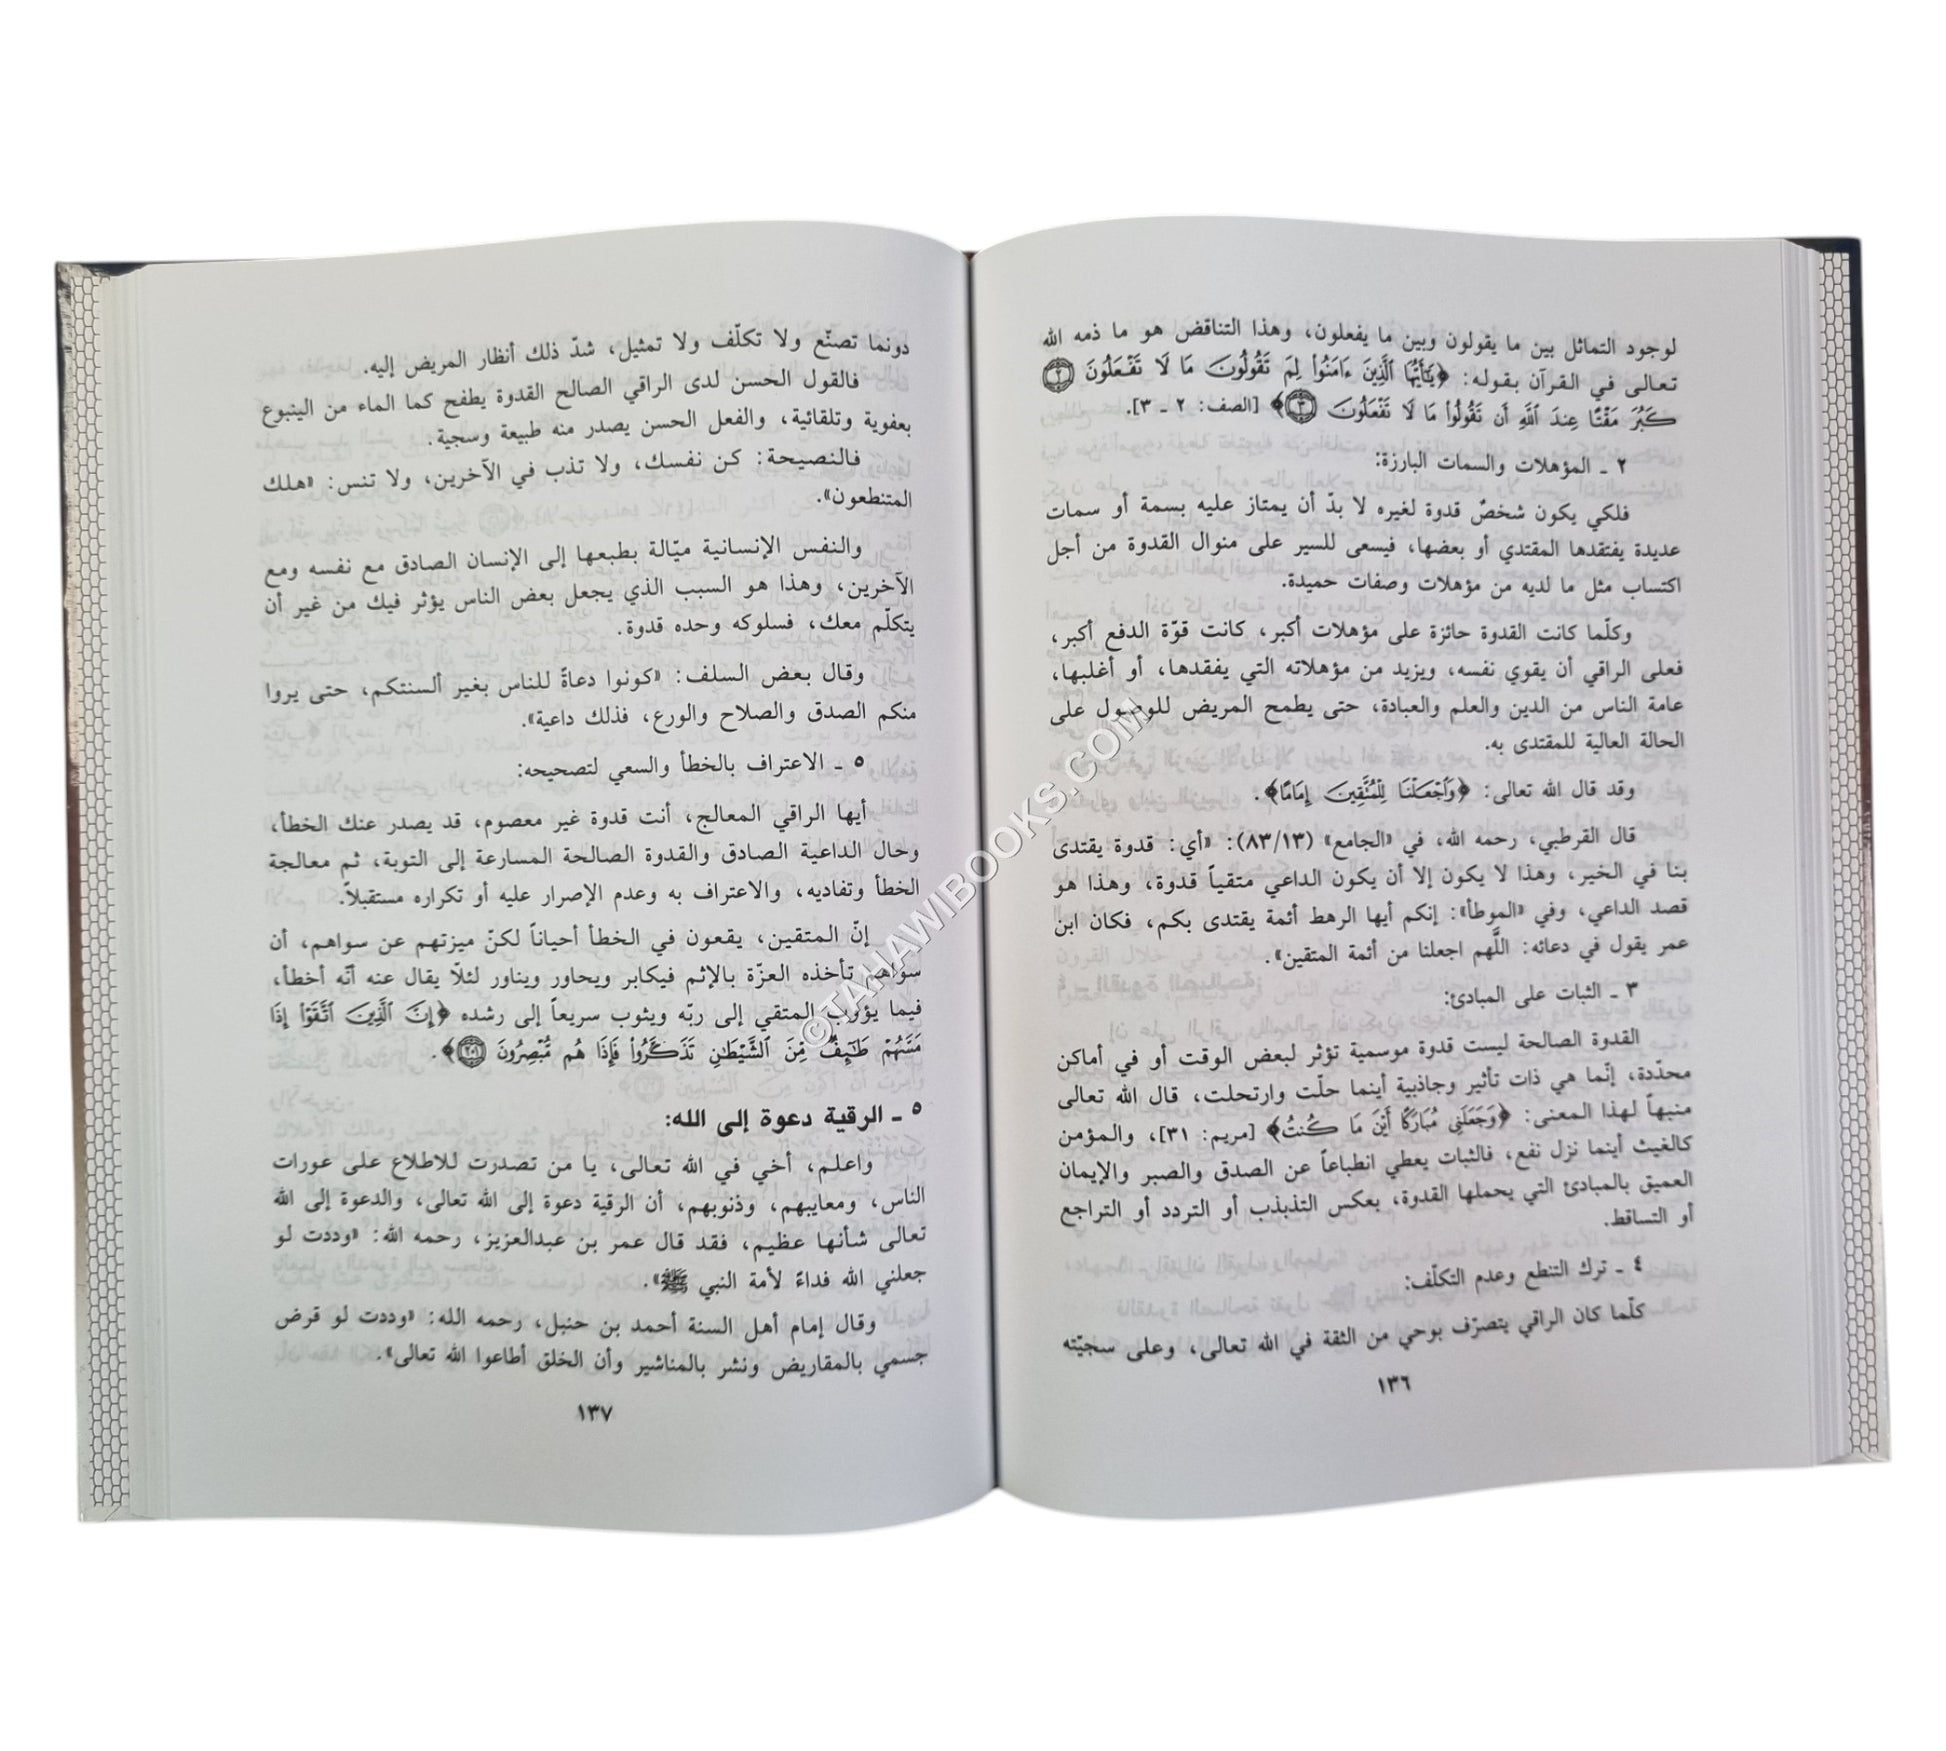 لوجود التماثل بين ما يقولون وبين ما يفعلون، وهذا التناقض هو ما ذمه الله
تعالى في القرآن بقوله: ﴿يَٰٓأَيُّهَا ٱلَّذِينَ ءَامَنُوا۟ لِمَ تَقُولُونَ مَا لَا تَفْعَلُونَ ٢
كَبُرَ مَقْتًا عِندَ ٱللَّهِ أَن تَقُولُوا۟ مَا لَا تَفْعَلُونَ ٣﴾ [الصف: ٢ ـ ٣].
٢ ـ المؤهلات والسمات البارزة:
فلكي يكون شخصٌ قدوة لغيره لا بدّ أن يمتاز عليه بسمة أو سمات
عديدة يفتقدها المقتدي أو بعضها، فيسعى للسير على منوال القدوة من أجل
اكتساب مثل ما لديه من مؤهلات وصفات حميدة.
وكلّما كانت القدوة حائزة على مؤهلات أكبر، كانت قوّة الدفع أكبر،
فعلى الراقي أن يقوي نفسه، ويزيد من مؤهلاته التي يفقدها، أو أغلبها،
عامة الناس من الدين والعلم والعبادة، حتى يطمح المريض للوصول على
الحالة العالية للمقتدى به.
وقد قال الله تعالى: ﴿وَٱجْعَلْنَا لِلْمُتَّقِينَ إِمَامًا﴾.
قال القرطبي، رحمه الله، في «الجامع» (٨٣/١٣): «أي: قدوة يقتدى
بنا في الخير، وهذا لا يكون إلا أن يكون الداعي متقياً قدوة، وهذا هو
قصد الداعي، وفي «الموطأ»: إنكم أيها الرهط أئمة يقتدى بكم، فكان ابن
عمر يقول في دعائه: اللَّهم اجعلنا من أئمة المتقين».
٣ ـ الثبات على المبادئ:
القدوة الصالحة ليست قدوة موسمية تؤثر لبعض الوقت أو في أماكن
محدّدة، إنّما هي ذات تأثير وجاذبية أينما حلّت وارتحلت، قال الله تعالى
منبهاً لهذا المعنى: ﴿وَجَعَلَنِى مُبَارَكًا أَيْنَ مَا كُنتُ﴾ [مريم: ٣١]، والمؤمن
كالغيث أينما نزل نفع، فالثبات يعطي انطباعاً عن الصدق والصبر والإيمان
العميق بالمبادئ التي يحملها القدوة، بعكس التذبذب أو التردد أو التراجع
أو التساقط.
٤ ـ ترك التنطع وعدم التكلّف:
كلّما كان الراقي يتصرّف بوحي من الثقة في الله تعالى، وعلى سجيّته
١٣٦
دونما تصنّع ولا تكلّف ولا تمثيل، شدّ ذلك أنظار المريض إليه.
فالقول الحسن لدى الراقي الصالح القدوة يطفح كما الماء من الينبوع
بعفوية وتلقائية، والفعل الحسن يصدر منه طبيعة وسجية.
فالنصيحة: كن نفسك، ولا تذب في الآخرين، ولا تنس: «هلك
المتنطعون».
والنفس الإنسانية ميّالة بطبعها إلى الإنسان الصادق مع نفسه ومع
الآخرين، وهذا هو السبب الذي يجعل بعض الناس يؤثر فيك من غير أن
يتكلّم معك، فسلوكه وحده قدوة.
وقال بعض السلف: «كونوا دعاةً للناس بغير ألسنتكم، حتى يروا
منكم الصدق والصلاح والورع، فذلك داعية».
٥ ـ الاعتراف بالخطأ والسعي لتصحيحه:
أيها الراقي المعالج، أنت قدوة غير معصوم، قد يصدر عنك الخطأ،
وحال الداعية الصادق والقدوة الصالحة المسارعة إلى التوبة، ثم معالجة
الخطأ وتفاديه، والاعتراف به وعدم الإصرار عليه أو تكراره مستقبلاً.
إنّ المتقين، يقعون في الخطأ أحياناً لكنّ ميزتهم عن سواهم، أن
سواهم تأخذه العزّة بالإثم فيكابر ويحاور ويناور لئلّا يقال عنه أنّه أخطأ،
فيما يؤوب المتقي إلى ربّه ويثوب سريعاً إلى رشده ﴿إِنَّ ٱلَّذِينَ ٱتَّقَوْا۟ إِذَا
مَسَّهُمْ طَٰٓئِفٌ مِّنَ ٱلشَّيْطَٰنِ تَذَكَّرُوا۟ فَإِذَا هُم مُّبْصِرُونَ ٢٠١﴾.
٥ ـ الرقية دعوة إلى الله:
واعلم، أخي في الله تعالى، يا من تصدرت للاطلاع على عورات
الناس، ومعايبهم، وذنوبهم، أن الرقية دعوة إلى الله تعالى، والدعوة إلى الله
تعالى شأنها عظيم، فقد قال عمر بن عبدالعزيز، رحمه الله: «وددت لو
جعلني الله فداءً لأمة النبي ﷺ».
وقال إمام أهل السنة أحمد بن حنبل، رحمه الله: «وددت لو قرض
جسمي بالمقاريض ونشر بالمناشير وأن الخلق أطاعوا الله تعالى».
١٣٧
©TAHAWIBOOKS.COM